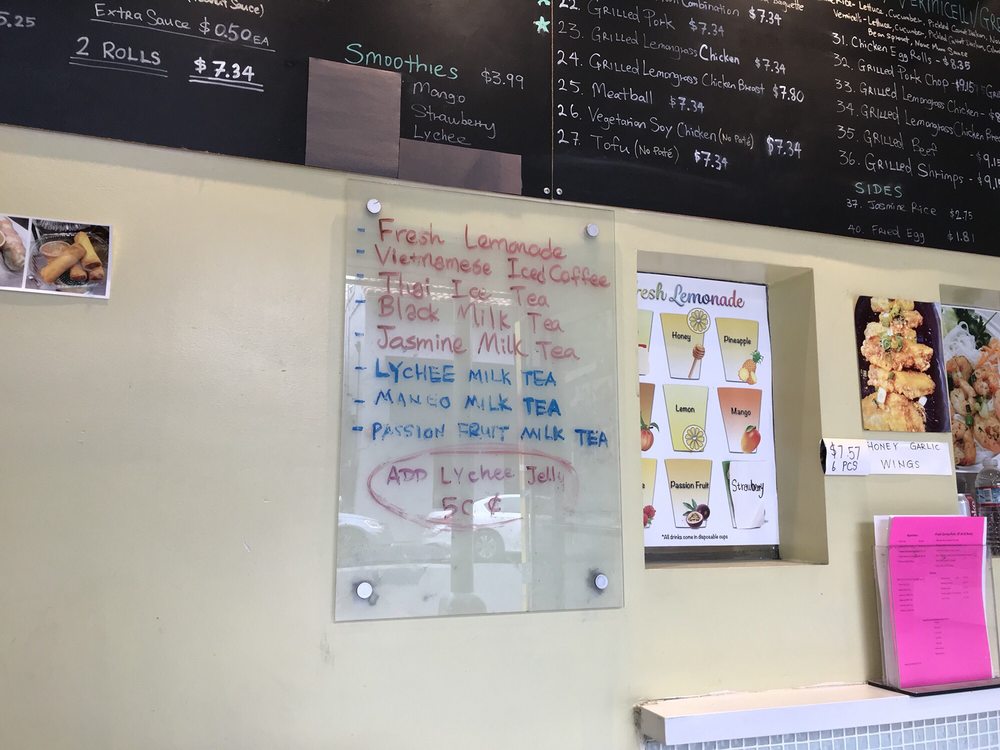 5.25
Extra Sauce $0.50 EA
2 Rolls $7.34
Smoothies $3.99
Mango
Strawberry
Lychee
Combination $7.34
22. Grilled Pork $7.34
23. Grilled Lemongrass Chicken $7.34
24. Grilled Lemongrass Chicken Breast $7.80
25. Meatball $7.34
26. Vegetarian Soy Chicken (No Paté) $7.34
27. Tofu (No Paté) $7.34
31. Chicken Egg Rolls - $8.35
32. Grilled Pork Chop
33. Grilled Lemongrass Chicken - $
34. Grilled Lemongrass Chicken
35. Grilled Beef - $9.15
36. Grilled Shrimps - $9.1
SIDES
37. Jasmine Rice $2.75
40. Fried Egg $1.81
- Fresh Lemonade
- Vietnamese Iced Coffee
- Thai Ice Tea
- Black Milk Tea
- Jasmine Milk Tea
- LYCHEE MILK TEA
- MANGO MILK TEA
- PASSION FRUIT MILK TEA
ADD LYchee Jelly
50 ¢
resh Lemonade
Honey
Pineapple
Lemon
Mango
Passion Fruit
Strawberry
*All drinks come in disposable cups
$7.57
6 PCS
HONEY GARLIC
WINGS